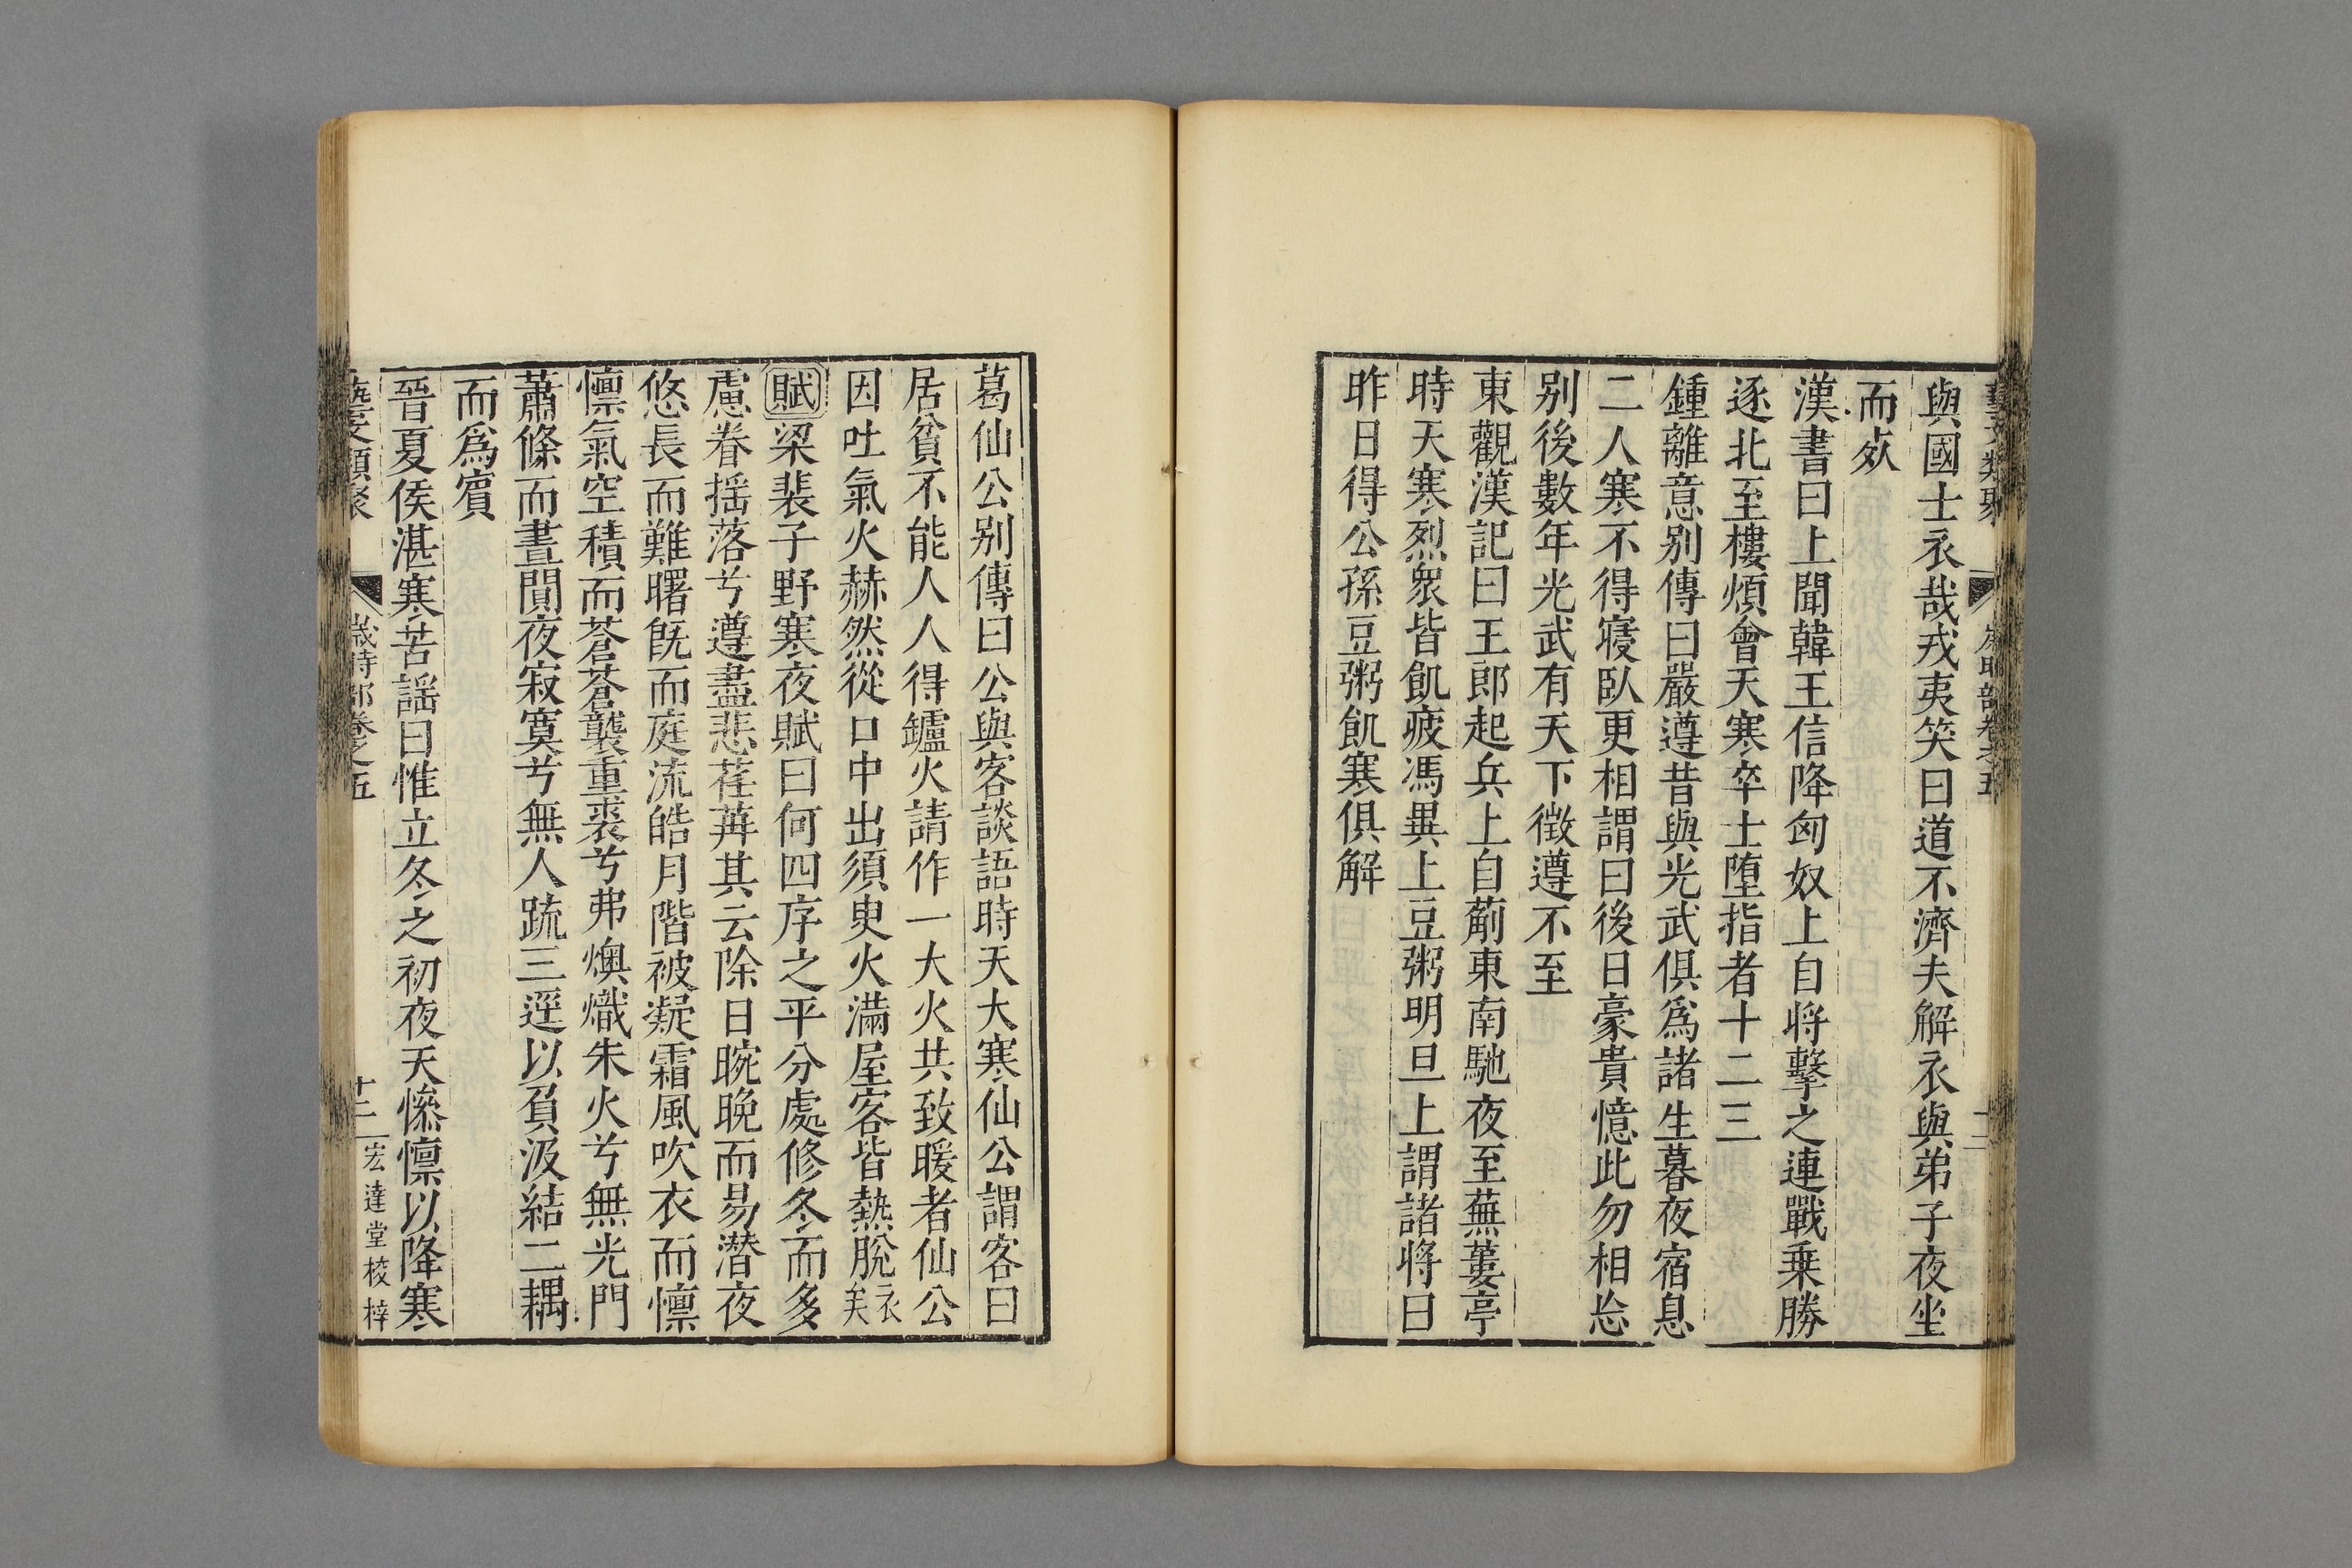 與國士衣哉戎夷笑曰道不濟夫解衣與弟子夜坐
而㱙
漢書曰上聞韓王信降匈奴上自將擊之連戰乗勝
逐北至樓煩會天寒卒士堕指者十二三
鍾離意别傳曰嚴遵昔與光武俱爲諸生暮夜宿息
二人寒不得寢臥更相謂曰後日豪貴憶此勿相忘
别後數年光武有天下徵遵不至
東觀漢記曰王郎起兵上自薊東南馳夜至蕪蔞亭
時天寒烈衆皆飢疲馮異上豆粥明旦上謂諸將曰
昨日得公孫豆粥飢寒俱解
葛仙公别傳曰公與客談語時天大寒仙公謂客曰
居貧不能人人得鑪火請作一大火共致暖者仙公
因吐氣火赫然從口中出須臾火滿屋客皆熱脫衣矣
賦梁裴子野寒夜賦曰何四序之平分處修冬而多
慮眷揺落兮遵盡悲荏苒其云除日晼晚而易潛夜
悠長而難曙旣而庭流皓月階被凝霜風吹衣而懍
懍氣空積而蒼蒼襲重裘兮弗燠熾朱火兮無光門
蕭條而晝閒夜寂寞兮無人䟽三逕以負汲結二耦
而爲賓
晉夏侯湛寒苦謡曰惟立冬之初夜天慘懍以降寒
歲時部卷之五
十二
宏達堂校梓